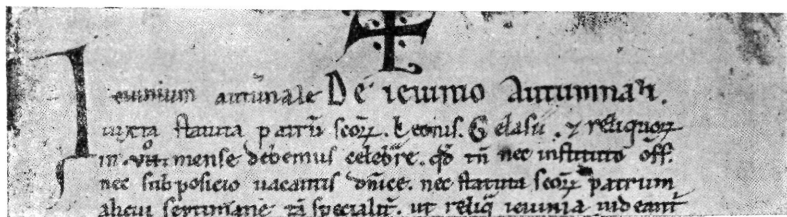 Ieiunium autūnale De ieiunio Autumnali.
iuxta statuta patrū scōꝝ. Leonis. Gelasii. ⁊ reliquoꝝ
in. mense debemus celebr̄e. qd̄ tn̄ nec instituto off.
nec sub posicio uacantis dn̄ice. nec statuta scōꝝ patrum
alicui septimane tā specialit̄. ut reliq̄ ieiunia uideant̄